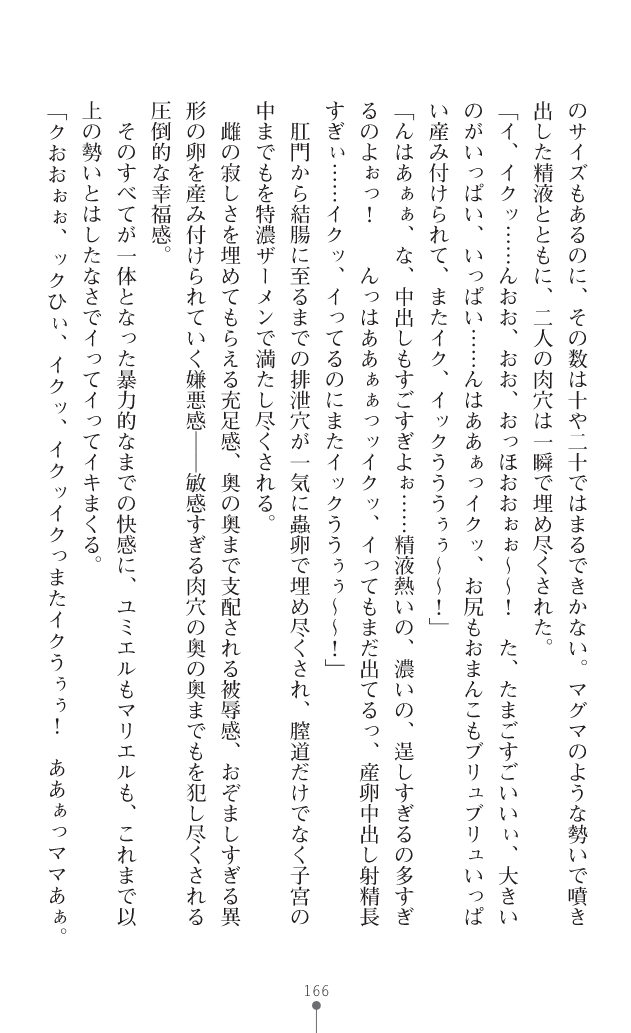 のサイズもあるのに、その数は十や二十ではまるできかない。マグマのような勢いで噴き
出した精液とともに、二人の肉穴は一瞬で埋め尽くされた。
「イ、イクッ……んおお、おお、おっほおおぉぉ～～！　た、たまごすごいいぃ、大きい
のがいっぱい、いっぱい……んはああぁっイクッ、お尻もおまんこもブリュブリュいっぱ
い産み付けられて、またイク、イックうううぅぅ～～！」
「んはあぁぁ、な、中出しもすごすぎよぉ……精液熱いの、濃いの、逞しすぎるの多すぎ
るのよぉっ！　んっはああぁぁつッイクッ、イってもまだ出てるっ、産卵中出し射精長
すぎぃ……イクッ、イってるのにまたイックううぅぅ～～！」
　肛門から結腸に至るまでの排泄穴が一気に蟲卵で埋め尽くされ、膣道だけでなく子宮の
中までもを特濃ザーメンで満たし尽くされる。
　雌の寂しさを埋めてもらえる充足感、奥の奥まで支配される被辱感、おぞましすぎる異
形の卵を産み付けられていく嫌悪感――敏感すぎる肉穴の奥の奥までもを犯し尽くされる
圧倒的な幸福感。
　そのすべてが一体となった暴力的なまでの快感に、ユミエルもマリエルも、これまで以
上の勢いとはしたなさでイってイってイキまくる。
「クおおぉぉ、ックひぃ、イクッ、イクッイクっまたイクうぅぅ！　ああぁっママあぁ。
166